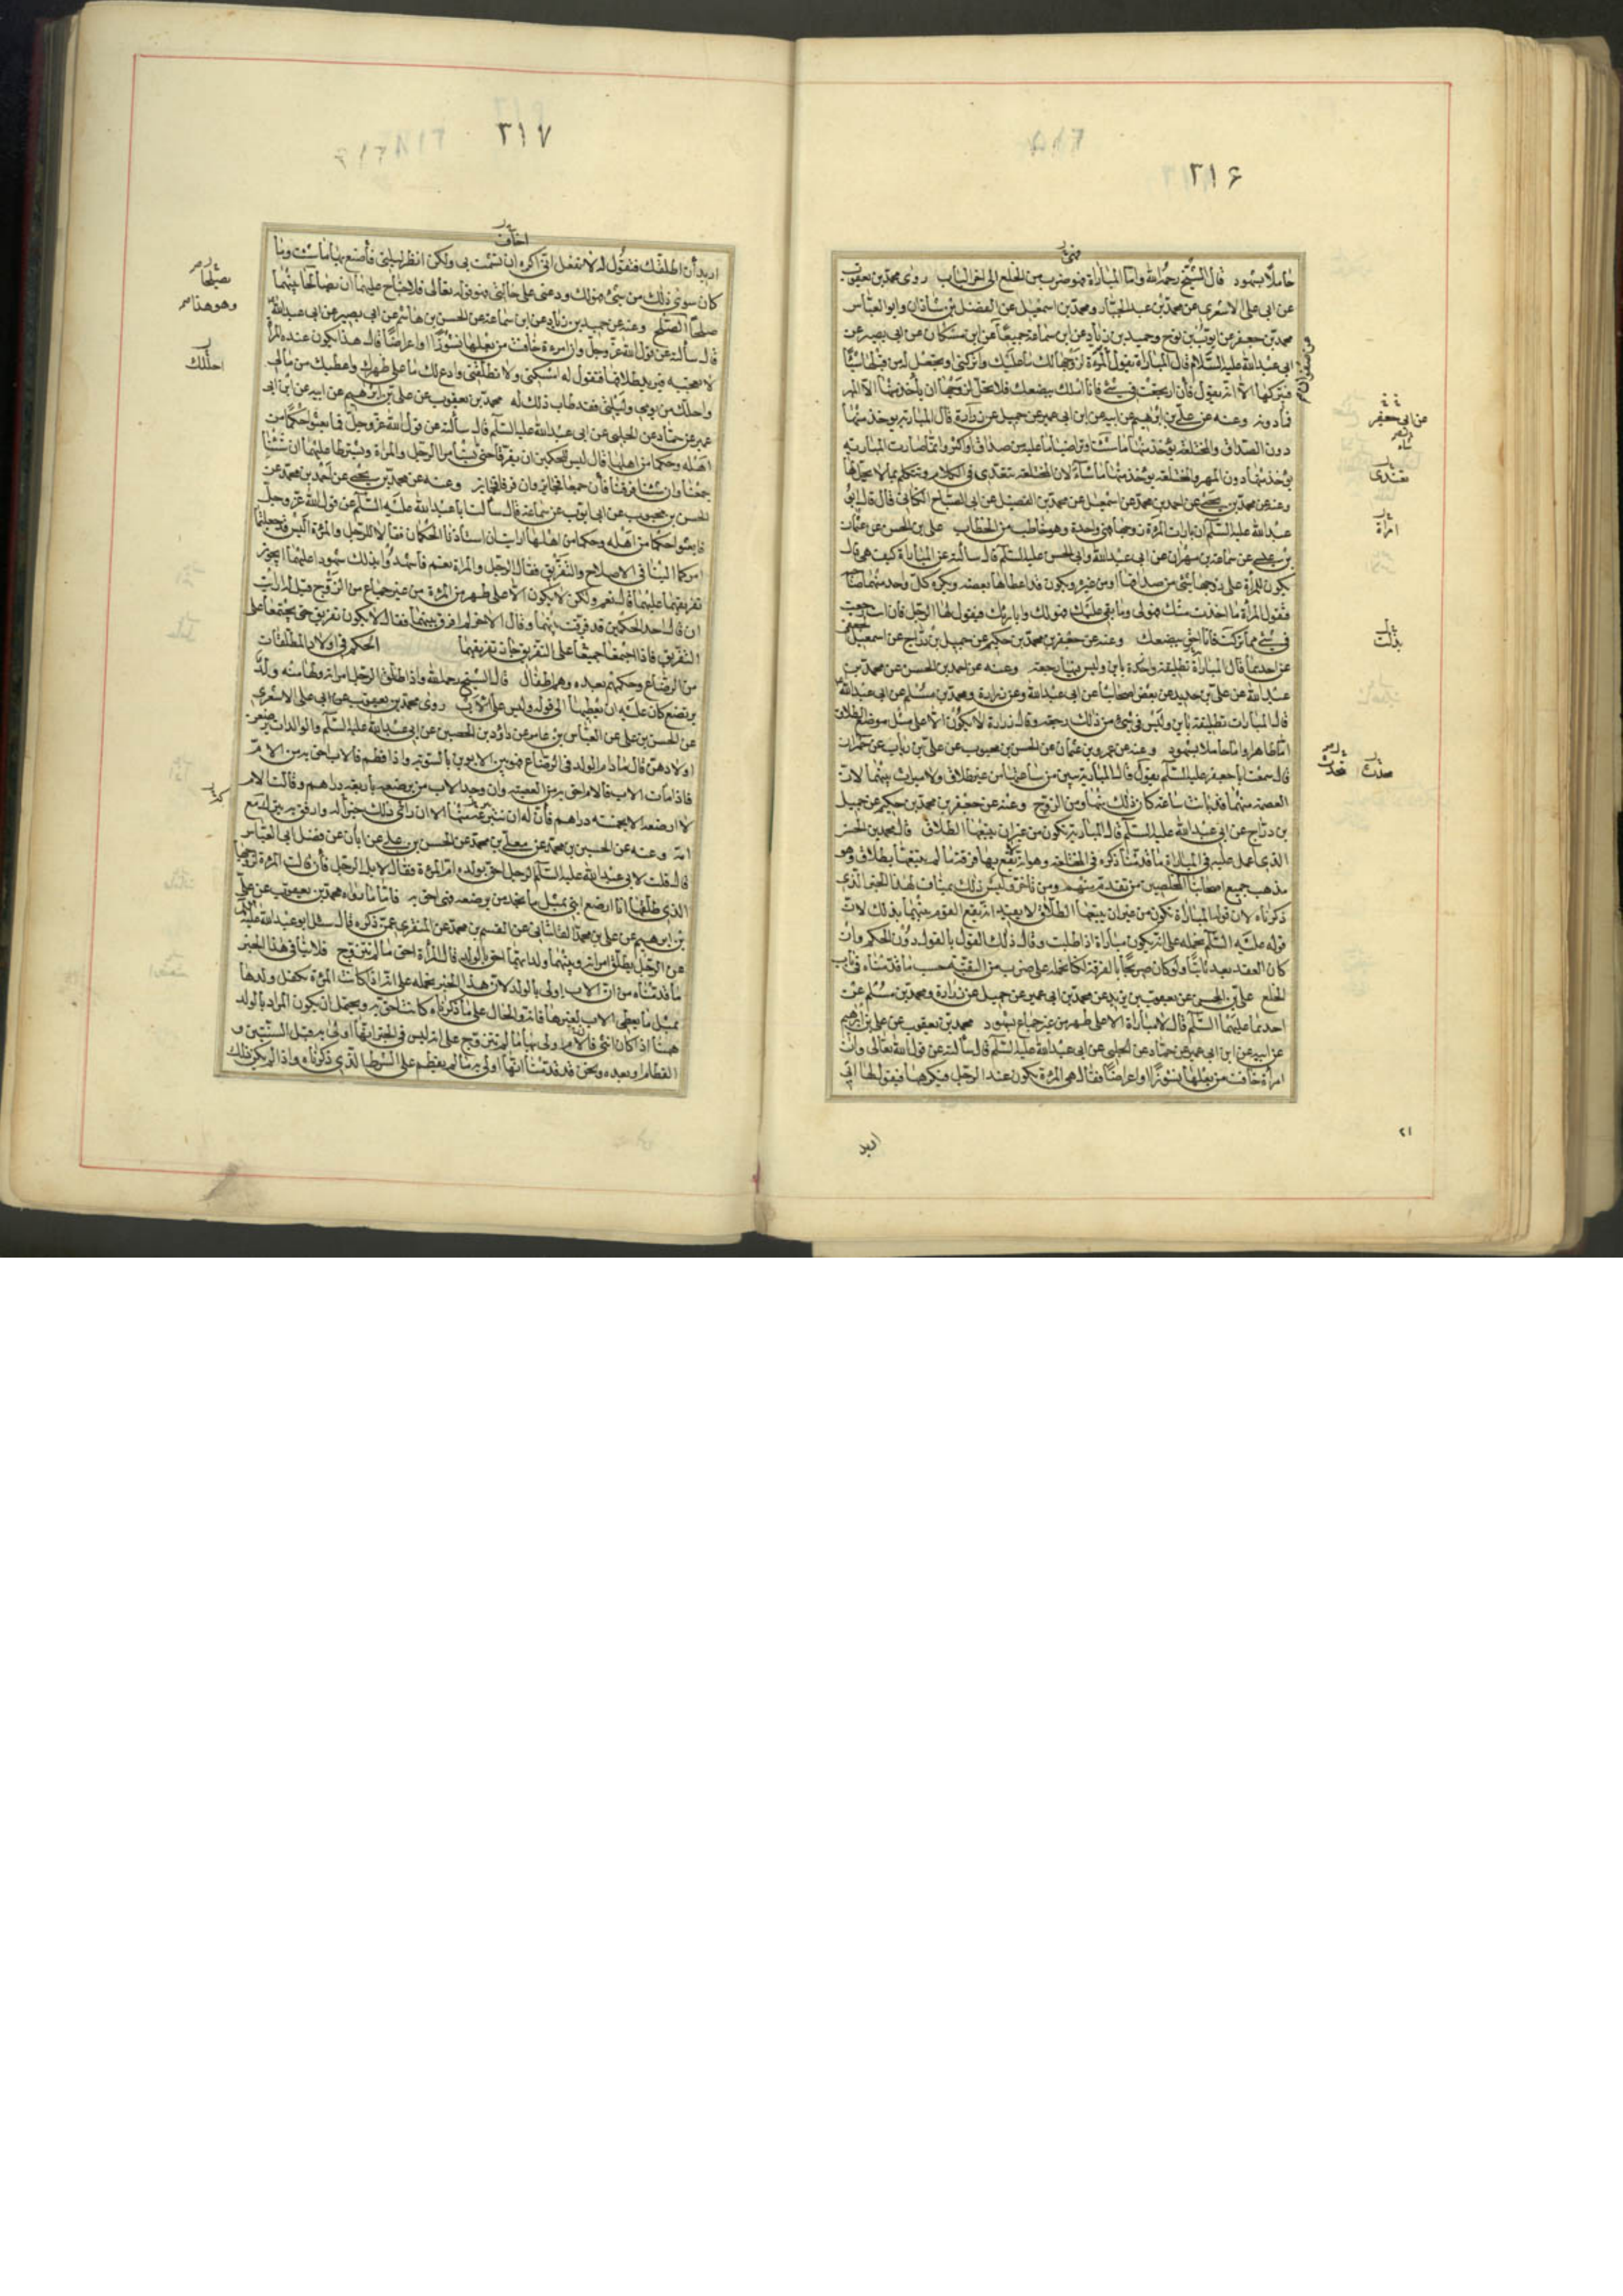 ٣١۶
حاملا بشهود قال الشيخ رحمه الله واما المباراة فهو ضرب من الخلع الى اخر الباب روى محمد بن يعقوب
عن ابى على الاشعرى عن محمد بن عبد الجبار ومحمد بن اسمعيل عن الفضل بن شاذان وابو العباس
محمد بن جعفر عن ايوب بن نوح وحميد بن زياد عن ابن سماعة جميعا عن ابن مسكان عن ابى بصير عن
ابى عبد الله عليه السلام قال المباراة تقول المرأة لزوجها لك ما عليك واتركنى او تجعل له من قبلها شيئا
فيتركها الا انه يقول فان ارتجعت فى شىء فانا املك ببضعك فلا يحل لزوجها ان يأخذ منها الا المهر
فما دونه وعنه عن على بن ابراهيم عن ابيه عن ابن ابى عمير عن جميل عن زرارة قال المبارئة يوخذ منها
دون الصداق والمختلعة يؤخذ منها ما شئت او ما تراضيا عليه من صداق او اكثر وانما صارت المبارئة
يؤخذ منها دون المهر والمختلعة يوخذ منها ما شاء لان المختلعة تعتدى فى الكلام وتتكلم بما لا يحل لها
وعنه عن محمد بن يحيى عن احمد بن محمد عن محمد بن اسمعيل عن محمد بن الفضيل عن ابى الصباح الكنانى قال قال ابو
عبد الله عليه السلم ان بارات المرأة زوجها فهى واحدة وهو خاطب من الخطاب على بن الحسن عن عثمان
بن عيسى عن سماعة بن مهران عن ابى عبد الله وابى الحسن عليه السلم قال سألته عن المباراة كيف هى قال
يكون للمرأة على زوجها شىء من صداقها او من غيره ويكون قد اعطاها بعضه ويكره كل واحد منهما صاحبه
فتقول المرأة ما اخذت منك فهو لى وما بقى عليك فهو لك وابارئك فيقول لها الرجل فان انت رجعت
فى شىء مما تركت فانا احق ببضعك وعنه عن جعفر بن محمد بن حكيم عن جميل بن دراج عن اسمعيل الجعفى
عن احدهما قال المباراة تطليقة واحدة باين وليس فيها رجعة وعنه عن احمد بن الحسن عن محمد بن
عبد الله عن على بن حديد عن بعض اصحابنا عن ابى عبد الله وعن زرارة ومحمد بن مسلم عن ابى عبد الله
قال المبارات تطليقة باين وليس فى شىء من ذلك رجعة وقال زرارة لا يكون الا على مثل موضع الطلاق
اما طاهرا واما حاملا بشهود وعنه عن عمرو بن عثمان عن الحسن بن محبوب عن على بن رياب عن حمران
قال سمعت ابا جعفر عليه السلم يقول قال المبارئة تبين من ساعتها من غير طلاق ولا ميراث بينهما لان
العصمة منهما قد بانت ساعة كان ذلك منها ومن الزوج وعنه عن جعفر بن محمد بن حكيم عن جميل
بن دراج عن ابى عبد الله عليه السلم قال المبارئة تكون من غير ان يتبعها الطلاق قال محمد بن الحسن
الذى اعمل عليه فى المباراة ما قدمنا ذكره فى المختلعة وهو انه لا يقع بها فرقة ما لم يتبعها بطلاق وهو
مذهب جميع اصحابنا المحصلين من تقدم منهم ومن تأخر وليس ذلك بمناف لهذا الخبر الذى
ذكرناه لان قوله المباراة تكون من غير ان يتبعها الطلاق لا يفيد انه يقع الفرقة بينهما بذلك لان
قوله عليه السلم نحمله على انه يكون مباراة اذا طلبت وقال ذلك القول بالقول دون الحكم وان
كان العقد بعد ثابتا ولو كان صريحا بالفرقة لكنا نحمله على ضرب من التقية حسب ما قدمناه فى باب
الخلع على بن الحسن عن يعقوب بن يزيد عن محمد بن ابى عمير عن جميل عن زرارة ومحمد بن مسلم عن
احدهما عليهما السلم قال لا مباراة الا على طهر من غير جماع بشهود محمد بن يعقوب عن على بن ابراهيم
عن ابيه عن ابن ابى عمير عن حماد عن الحلبى عن ابى عبد الله عليه السلم قال سألته عن قول الله تعالى وان
امرأة خافت من بعلها نشوزا او اعراضا فقال هى المرأة يكون عند الرجل فيكرهها فيقول لها انى
اريد
٢١
عن ابى جعفر
تعتدى
امرأة
بذلت
٣١٧
اخاف
اريد ان اطلقك فتقول له لا تفعل انى اكره ان تشمت بى ولكن انظر ليلتى فأصنع بها ما شئت وما
كان سوى ذلك من شىء فهو لك ودعنى على حالتى فهو قوله تعالى فلا جناح عليهما ان يصالحا بينهما
صلحا الصلح وعنه عن حميد بن زياد عن ابن سماعة عن الحسن بن هاشم عن ابى بصير عن ابى عبد الله
قال سألته عن قول الله عز وجل وان امرءة خافت من بعلها نشوزا او اعراضا قال هذا يكون عنده المرأة
لا تعجبه فيريد طلاقها فتقول له امسكنى ولا تطلقنى وادع لك ما على ظهرك واعطيك من مالى
واحلك من يومى وليلتى فقد طاب ذلك له محمد بن يعقوب عن على بن ابراهيم عن ابيه عن ابن ابى
عمير عن حماد عن الحلبى عن ابى عبد الله عليه السلم قال سألته عن قول الله عز وجل فابعثوا حكما من
اهله وحكما من اهلها قال ليس للحكمين ان يفرقا حتى يستأمرا الرجل والمرأة ويشترطا عليهما ان شئنا
جمعنا وان شئنا فرقنا فان جمعا فجايز وان فرقا فجايز وعنه عن محمد بن يحيى عن احمد بن محمد عن
الحسن بن محبوب عن ابى ايوب عن سماعة قال سألت ابا عبد الله عليه السلم عن قول الله عز وجل
فابعثوا حكما من اهله وحكما من اهلها ارايت ان استأذنا الحكمان فقالا للرجل والمرءة اليس قد جعلتما
امركما الينا فى الاصلاح والتفريق فقال الرجل والمرأة نعم فأشهدوا بذلك شهودا عليهما ايجوز
تفريقهما عليهما قال نعم ولكن لا يكون الا على طهر من المرءة من غير جماع من الزوج قيل له ارايت
ان قال احد الحكمين قد فرقت بينهما وقال الاخر لم افرق بينهما فقال لا يكون تفريق حتى يجتمعا على
التفريق فاذا اجتمعا جميعا على التفريق جاز تفريقهما الحكم فى اولاد المطلقات
من الرضاع وحكمهم بعده وهم اطفال قال الشيخ رحمه الله واذا طلق الرجل امرأته ولها منه ولد
يرضع كان عليه ان يعطيها الى قوله وليس على الاب روى محمد بن يعقوب عن ابى على الاشعرى
عن الحسن بن على عن العباس بن عامر عن داود بن الحصين عن ابى عبد الله عليه السلم والوالدات يرضعن
اولادهن قال ما دام الولد فى الرضاع فهو بين الابوين بالسوية واذا فطم فالاب احق به من الام
فاذا مات الاب فالام احق به من العصبة وان وجد الاب من يرضعه بأربعة دراهم وقالت الام
لا ارضعه الا بخمسة دراهم فان له ان ينتزعه منها الا ان ذلك خير له وارفق به يترك مع
امه وعنه عن الحسين بن محمد عن معلى بن محمد عن الحسن بن على عن ابان عن فضل ابى العباس
قال قلت لابى عبد الله عليه السلم الرجل احق بولده ام المرءة فقال لا بل الرجل فان قالت المرءة لزوجها
الذى طلقها انا ارضع ابنى بمثل ما تجد من يرضعه فهى احق به فاما ما رواه محمد بن يعقوب عن على
بن ابرهيم عن على بن محمد القاسانى عن القسم بن محمد عن المنقرى عمن ذكره قال سئل ابو عبد الله عليه السلم
عن الرجل يطلق امراته وبينهما ولد ايهما احق بالولد قال المرأة احق ما لم تتزوج فلا ينافى هذا الخبر
ما قدمناه من ان الاب اولى بالولد لان هذا الخبر نحمله على انه اذا كانت المرءة تكفل ولدها
بمثل ما يعطى الاب لغيرها فانه والحال على ما ذكرناه كانت احق به ويحتمل ان يكون المراد بالولد
هنا اذا كان انثى فالام اولى بها ما لم تتزوج على انه ليس فى الخبر انها اولى به قبل السنتين و
الفطام او بعده ونحن قد قدمنا انها اولى به ما لم يفطم على الشرط الذى ذكرناه واذا لم يكن ذلك
يصلحا
وهو هذا
احلك